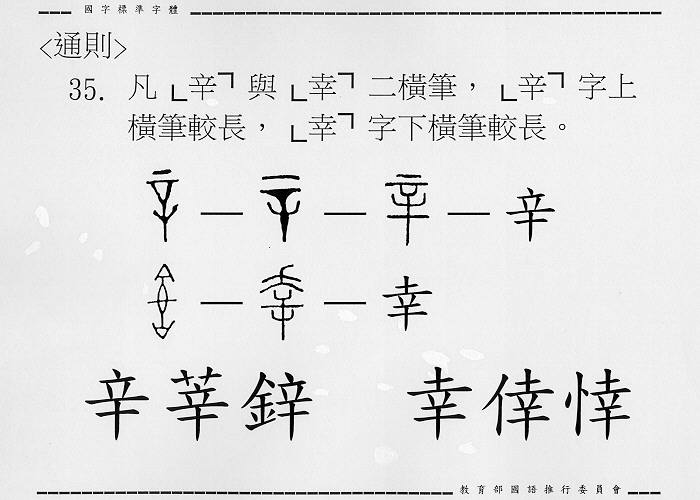 國字標準字體
<通則>
35. 凡「辛」與「幸」二橫筆，「辛」字上
橫筆較長，「幸」字下橫筆較長。
— — — 辛
— — 幸
辛莘鋅 幸倖悻
教育部國語推行委員會